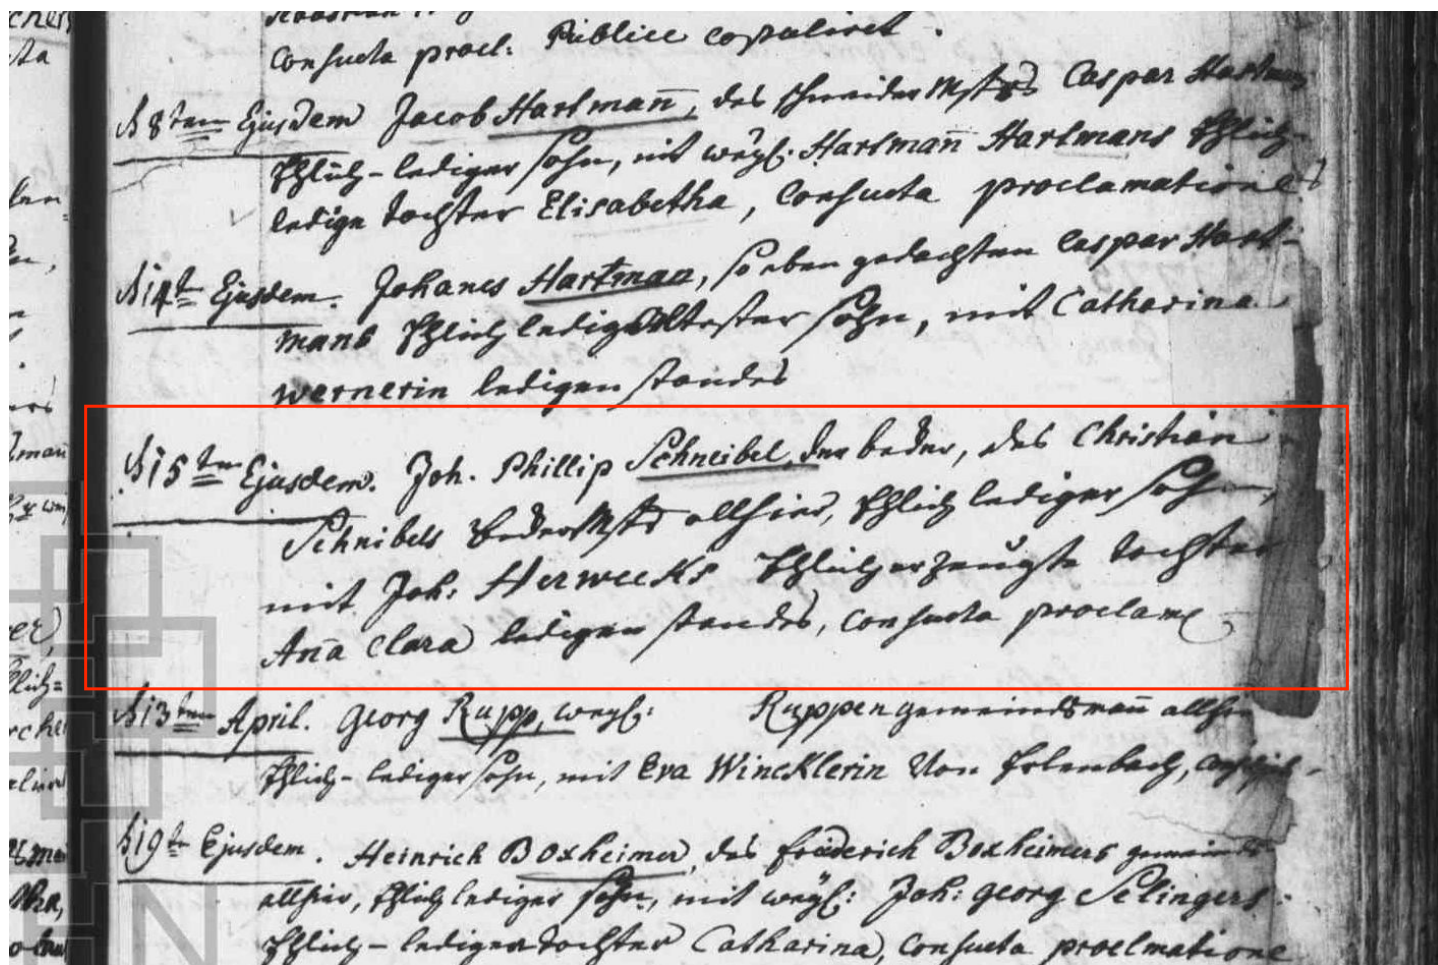 consueta procl: Publice copuliret.
d 8ten Ejusdem Jacob Hartman̄, des schneider Mstrs Caspar Hartman
Ehlich-lediger sohn, mit weyl: Hartman̄ Hartmans Ehlich-
ledige tochter Elisabetha, Consueta proclamatione
d 14t Ejusdem. Johanes Hartman, so eben gedachten Caspar Hart-
mans Ehlich ledig Eltester sohn, mit Catharina
wernerin ledigen standes
d 15ten Ejusdem. Joh. Phillip Schneibel, der beder, des Christian
Schnibels beders Mstr allhier, Ehlich lediger sohn,
mit Joh: Herwecks Ehlich erzeugte tochter
An̄a Clara ledigen standes, Consueta proclam
d 13ten April. Georg Rupp, weyl: Ruppen gemeindsman̄ allhier
Ehlich-lediger sohn, mit Eva Wincklerin Von Erlenbach,
d 19t Ejusdem. Heinrich Boxheimer, des friederich Boxheimers gemeinds
allhier, Ehlich lediger sohn, mit weyl: Joh: georg Selingers
Ehlich-lediger tochter Catharina, Consueta proclmatione